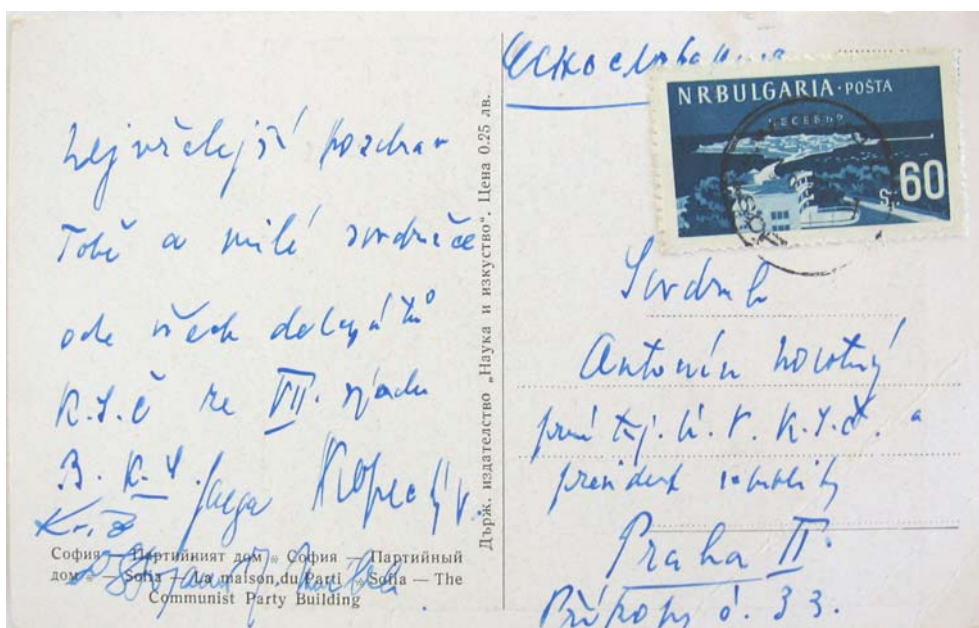 Nejvřelejší pozdrav
Tobě a milé soudružce
ode všech delegátů
K.S.Č ze VII. sjezdu
B. K. S.
Kopecký V.
София — Партийният дом ※ София — Партийный
дом ※ — Sofia — La maison du Parti ※ Sofia — The
Communist Party Building
Държ. издателство „Наука и изкуство“. Цена 0.25 лв.
Чехословакия
NRBULGARIA · POŠTA
НЕСЕБЪР
St. 60
Soudruh
Antonín Novotný
první taj. Ú. V. K.S.Č. a
president republiky
Praha II.
Příkopy č. 33.